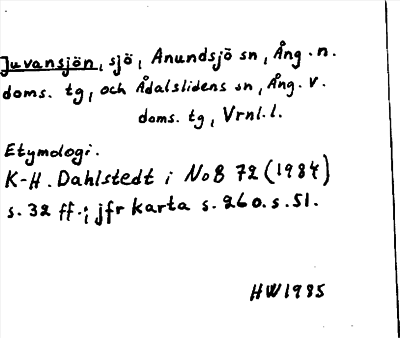 Juvansjön, sjö, Anundsjö sn, Ång. n.
doms. tg, och Ådalslidens sn, Ång. v.
doms. tg, Vrnl. l.
Etymologi.
K-H. Dahlstedt i NoB 72 (1984)
s. 32 ff.; jfr karta s. 26 o. s. 51.
HW1985